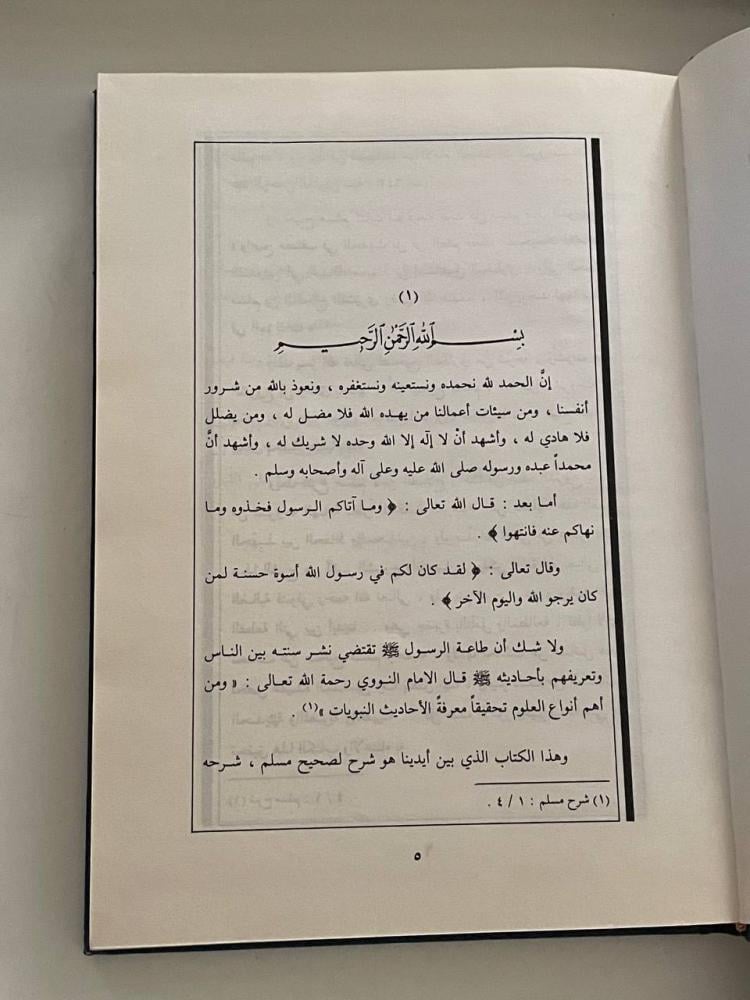 (١)
بسم الله الرحمن الرحيم
إنَّ الحمد لله نحمده ونستعينه ونستغفره ، ونعوذ بالله من شرور
أنفسنا ، ومن سيئات أعمالنا من يهده الله فلا مضل له ، ومن يضلل
فلا هادي له ، وأشهد أنْ لا إلٰه إلا الله وحده لا شريك له ، وأشهد أنَّ
محمداً عبده ورسوله صلى الله عليه وعلى آله وأصحابه وسلم .
أما بعد : قال الله تعالى : ﴿ وما آتاكم الرسول فخذوه وما
نهاكم عنه فانتهوا ﴾ .
وقال تعالى : ﴿ لقد كان لكم في رسول الله أسوة حسنة لمن
كان يرجو الله واليوم الآخر ﴾ .
ولا شك أن طاعة الرسول ﷺ تقتضي نشر سنته بين الناس
وتعريفهم بأحاديثه ﷺ قال الامام النووي رحمة الله تعالى : « ومن
أهم أنواع العلوم تحقيقاً معرفةُ الأحاديث النبويات »(١) .
وهذا الكتاب الذي بين أيدينا هو شرح لصحيح مسلم ، شرحه
(١) شرح مسلم : ١ / ٤ .
٥